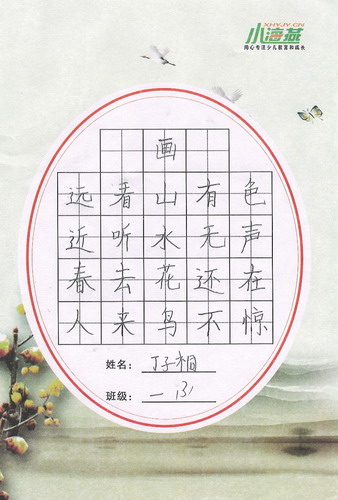 XHYJY.CN
小海燕
用心专注少儿教育和成长
画
远看山有色
近听水无声
春去花还在
人来鸟不惊
姓名：丁子桐
班级：一（3）